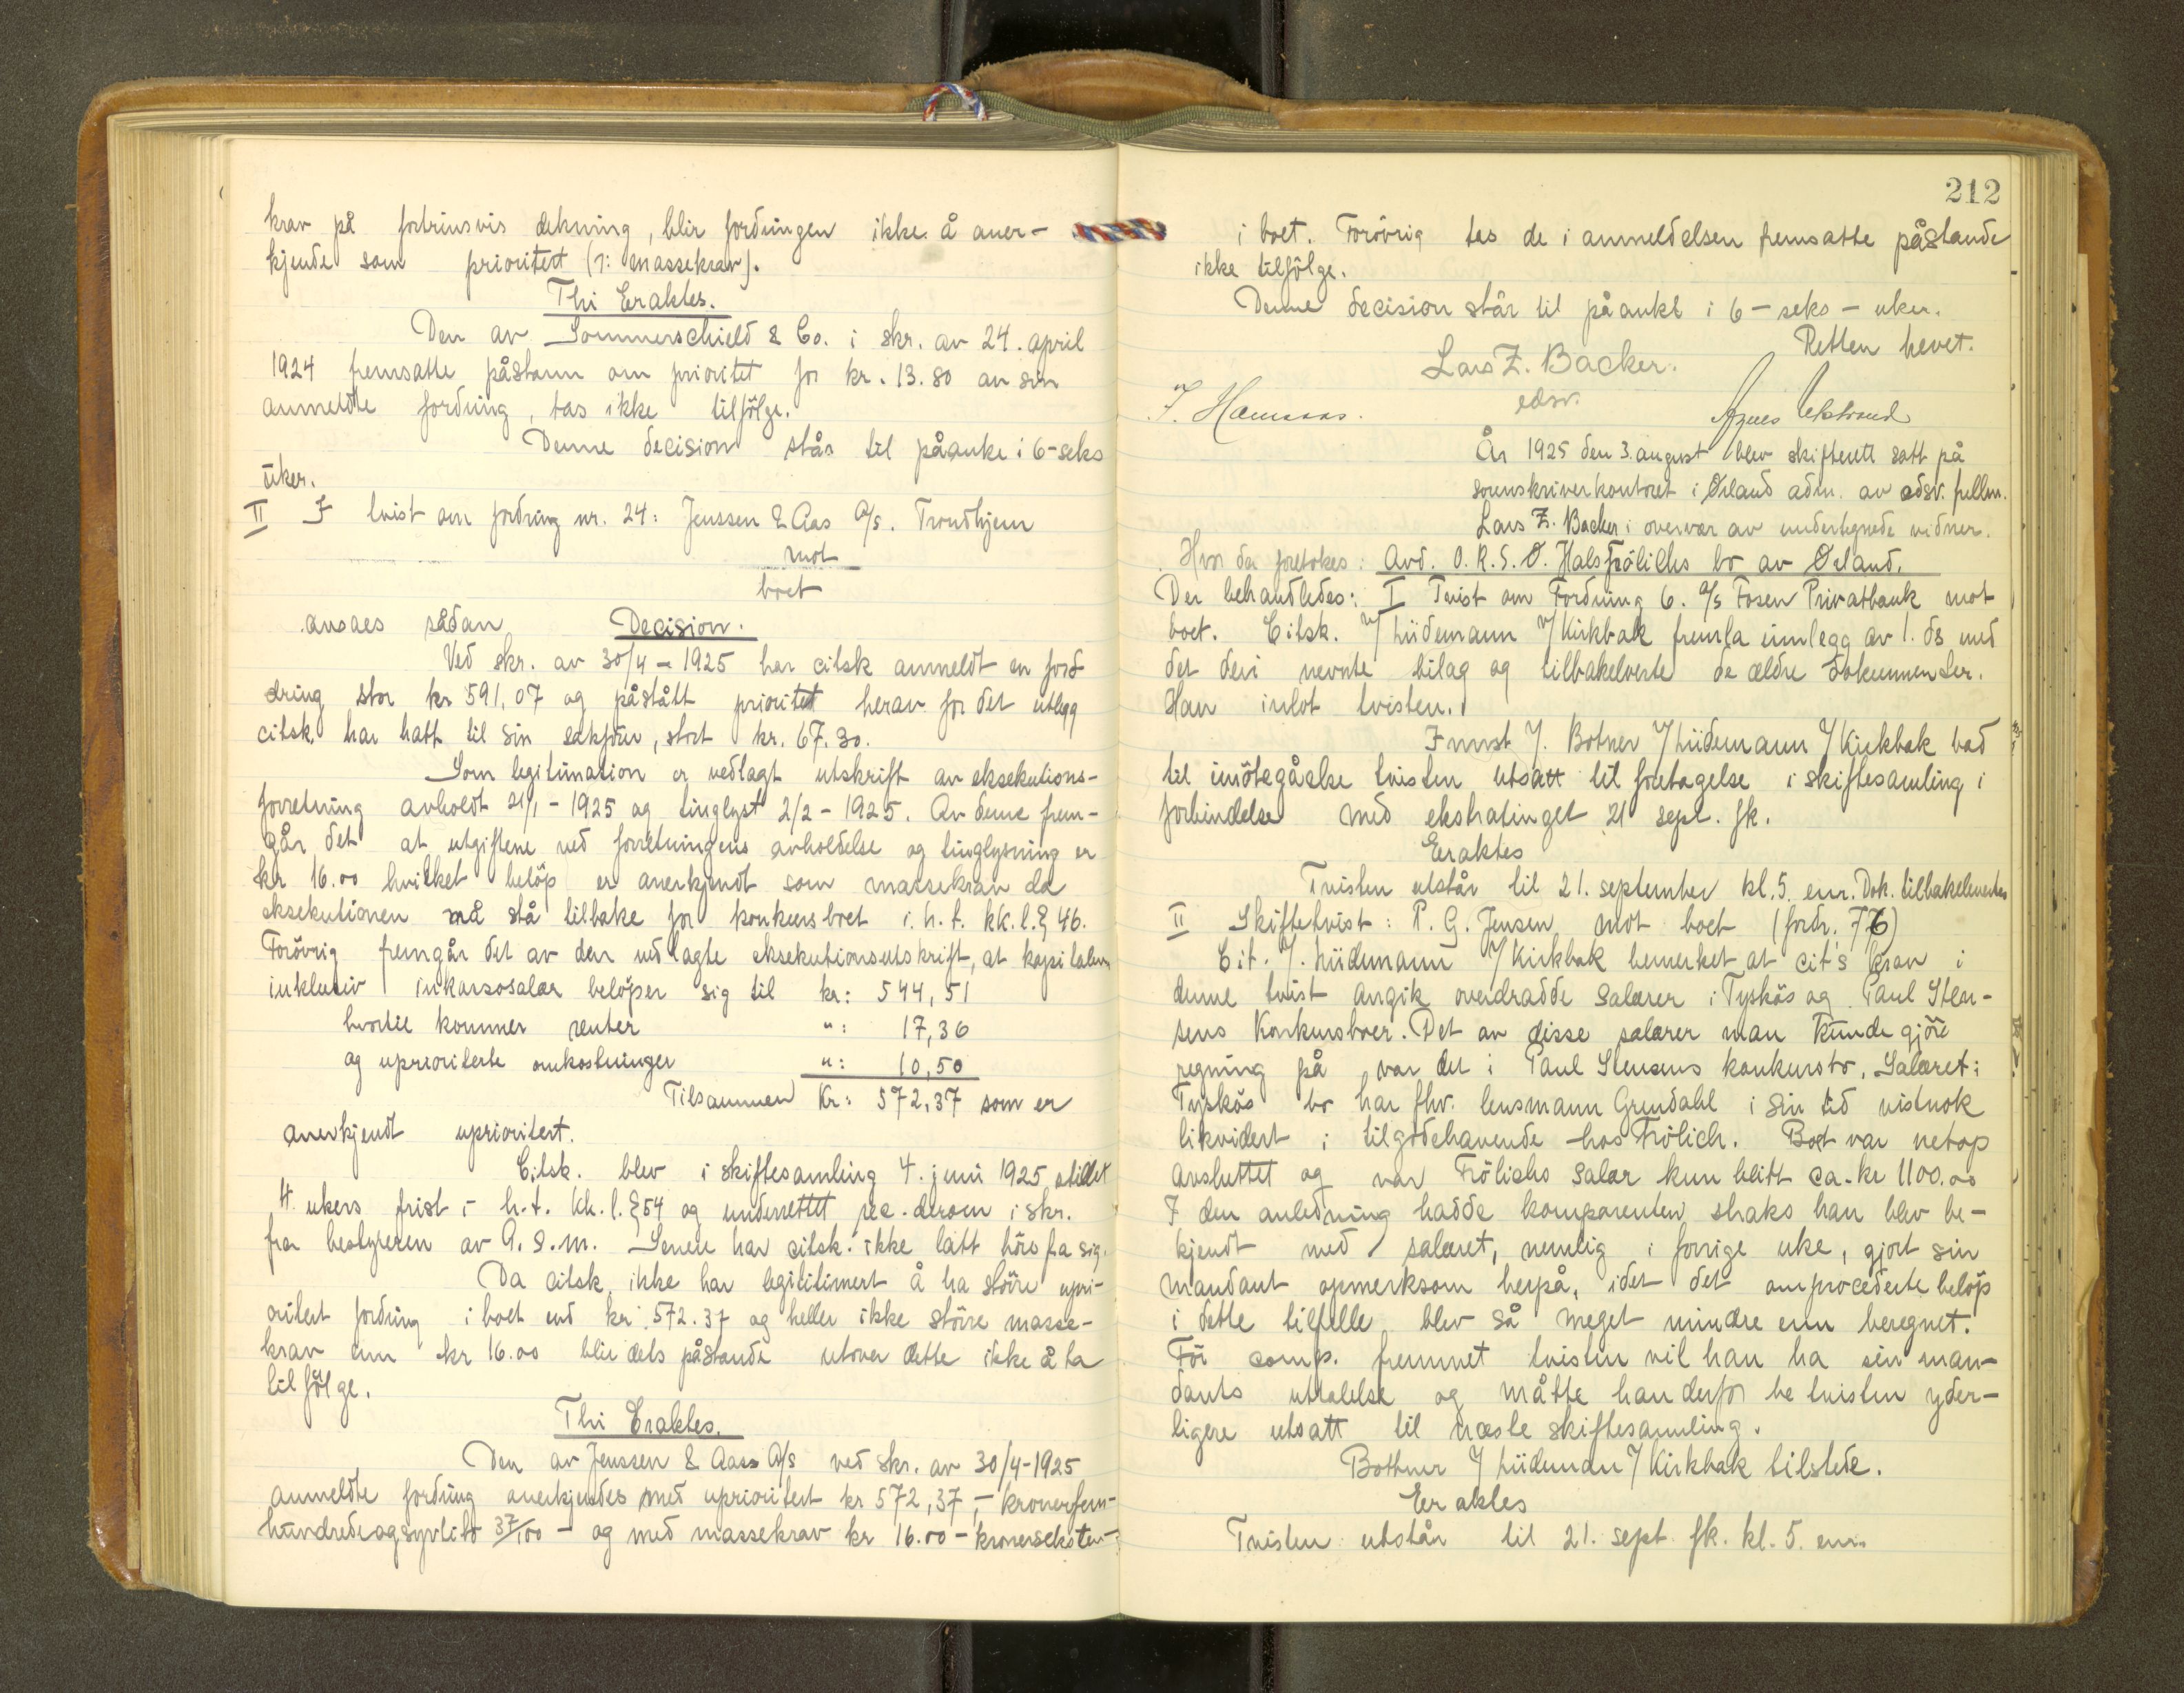 krav på fortrinsvis dekning, blir fordringen ikke å aner-
kjende som prioritert (ɔ: massekrav).
Thi Eraktes.
Den av Sommerschield & Co. i skr. av 24. april
1924 fremsatte påstann om prioritet for kr. 13.80 av sin
anmeldte fordring, tas ikke tilfölge.
Denne decision står til påanke i 6-seks
uker.
II I tvist om fordring nr. 24: Jenssen & Aas A/s. Trondhjem
mot
boet
avsaes sådan Decision.
Ved skr. av 30/4 - 1925 har citsk anmeldt en ford
dring stor kr 591,07 og påstått prioritet herav for det utlegg
citsk. har hatt til sin sakförer, stort kr. 67.30.
Som legitimation er vedlagt utskrift av eksekutions-
forretning avholdt 21/1 - 1925 og tinglyst 2/2 - 1925. Av denne frem-
går det at utgiftene ved forretningens avholdelse og tinglysning er
kr 16.00 hvilket belöp er anerkjendt som massekrav da
eksekutionen må stå tilbake for konkursboet i. h. t. kk. l. § 46.
Forövrig fremgår det av den vedlagte eksekutionsutskrift, at kapitalen
inklusiv inkassosalær belöper sig til kr: 544,51
hvortil kommer renter ": 17,36
og uprioriterte omkostninger ": 10,50
Tilsammen Kr: 572,37 som er
anerkjendt uprioritert.
Citsk. blev i skiftesamling 4. juni 1925 stillet
4 ukers frist i h. t. kk. l. § 54 og underrettet derom i skr.
fra bestyreren av G. s. m. Senere har citsk. ikke latt höre fra sig.
Da citsk. ikke har legitimert å ha större upri-
oritert fordring i boet end kr. 572.37 og heller ikke större masse-
krav enn kr 16.00 blir dets påstande utover dette ikke å ta
til fölge.
Thi Eraktes.
Den av Jenssen & Aass A/s ved skr. av 30/4-1925
anmeldte fordring anerkjendes med uprioritert kr 572,37, - kronerfem-
hundredeogsyvtito 37/100 - og med massekrav kr 16.00 - kronerseksten-
212
i boet. Forövrig tas de i anmeldelsen fremsatte påstande
ikke tilfölge.
Denne decision står til påankt i 6 - seks - uker.
Retten hevet.
Lars Z. Backer.
edsv.
J. Hamsaas.
Agnes Ulstrand
År 1925 den 3. august blev skifterett satt på
sorenskriverkontoret i Ørland adm. av edsv. fullm.
Lars Z. Backer i overvær av undertegnede vidner.
Hvor da foretokes: Avd. O.R.S. O. Hals Frölichs bo av Ørland.
Der behandledes: I Tvist om Fordring 6. A/s Fosen Privatbank mot
boet. Citsk. v/ Lüdemann v/ Kirkbak fremla innlegg av 1. ds med
det deri nevnte bilag og tilbakeleverte de ældre dokumenter.
Han inlot tvisten.
Innst J. Botner v/ Lüdemann v/ Kirkbak bad
til imötegåelse tvisten utsatt til foretagelse i skiftesamling i
forbindelse med ekstratinget 21 sept. fk.
Eraktes
Tvisten utstår til 21. september kl. 5. em. Dok. tilbakelevertes
II Skiftetvist: P. G. Jensen mot boet (fordr. 76)
Cit. v/. Lüdemann v/ Kirkbak bemerket at cit's krav i
denne tvist angik overdradde salærer i Tyskös og Paul Sten-
sens Konkursboer. Det av disse salærer man kunde gjöre
regning på var det i Paul Stensens konkursbo. Salæret i
Tyskös bo har fhv. lensmann Grendahl i sin tid vistnok
likvidert i tilgodehavende hos Frölich. Boet var netop
avsluttet og var Frölichs salær kun blitt ca. kr 1100.00
I den anledning hadde komparenten straks han blev be-
kjendt med salæret, nemlig i forrige uke, gjort sin
mandant opmerksom herpå, idet det omprocederte belöp
i dette tilfelle blev så meget mindre enn beregnet.
För comp. fremmet tvisten vil han ha sin man-
dants uttalelse og måtte han derfor be tvisten yder-
ligere utsatt til næste skiftesamling.
Bothner v/ Lüdeman v/ Kirkbak tilstede.
Eraktes
Tvisten utstår til 21. sept fk. kl. 5. em.